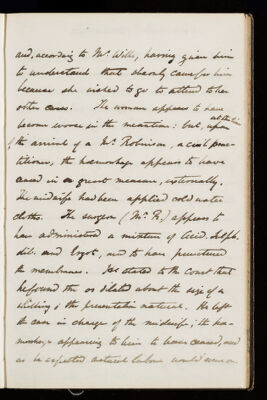 and, according to Mr. Wills, having given him
to understand that she only came for him
because she wished to go to attend to her
other cases. The woman appears to have
become worse in the meantime: but, upon
the arrival of a Mr. Robinson, a civil prac-
titioner, the hæmorrhage appears to have
ceased in a great measure, externally.
The midwife had been applied cold water
cloths. The surgeon (Mr. R.) appears to
have administered a mixture of Acid. Sulph.
dil. and Ergot, and to have punctured
the membranes. He stated to the Court that
he found the os dilated about the size of a
shilling; the presentation natural. He left
the case in charge of the midwife; the hæ-
morrhage appearing to him to have ceased, and
as he expected natural labour would come on